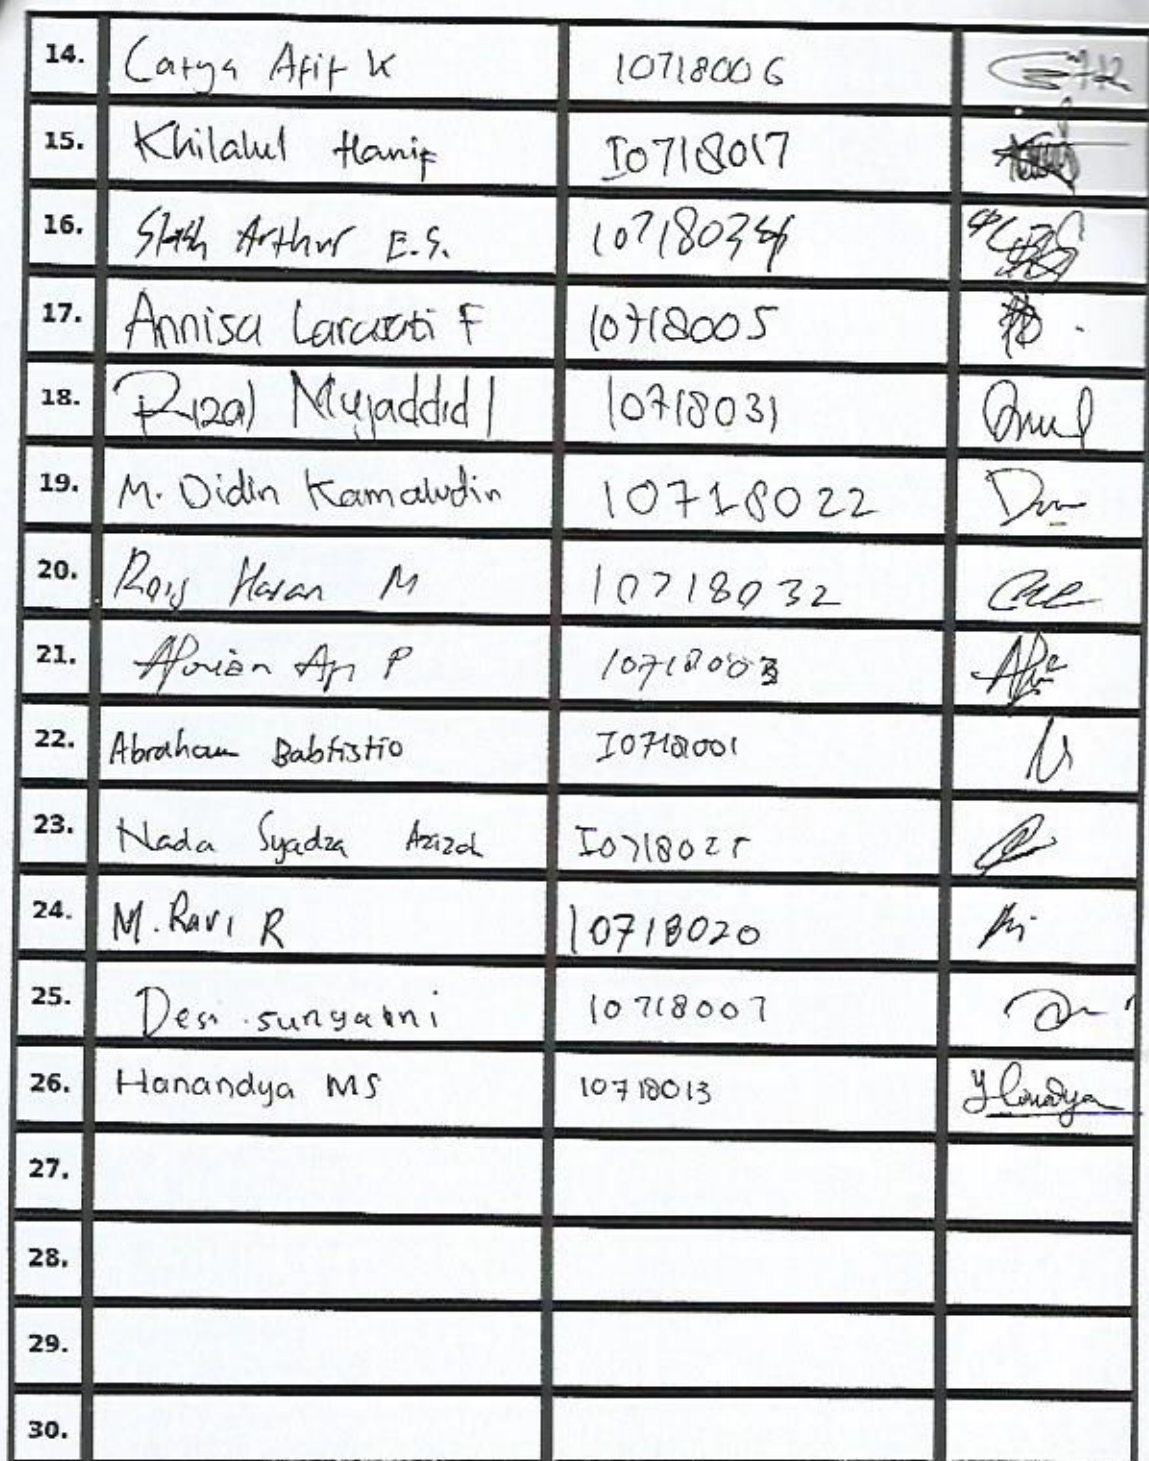 14. Carya Afif K 10718006
15. Khilalul Hanif I0718017
16. Arthur E.S. 10718034
17. Annisa Larasati F 10718005
18. Rizal Mujaddid I 10718031
19. M. Didin Kamaludin 10718022
20. Rois Hasan M 10718032
21. Aji P 10718003
22. Abraham Babtistio I0718001
23. Nada Syadza Azizah I0718025
24. M. Ravi R 10718020
25. Desi suryatni 10718007
26. Hanandya MS 10718013 Hanandya
27.
28.
29.
30.